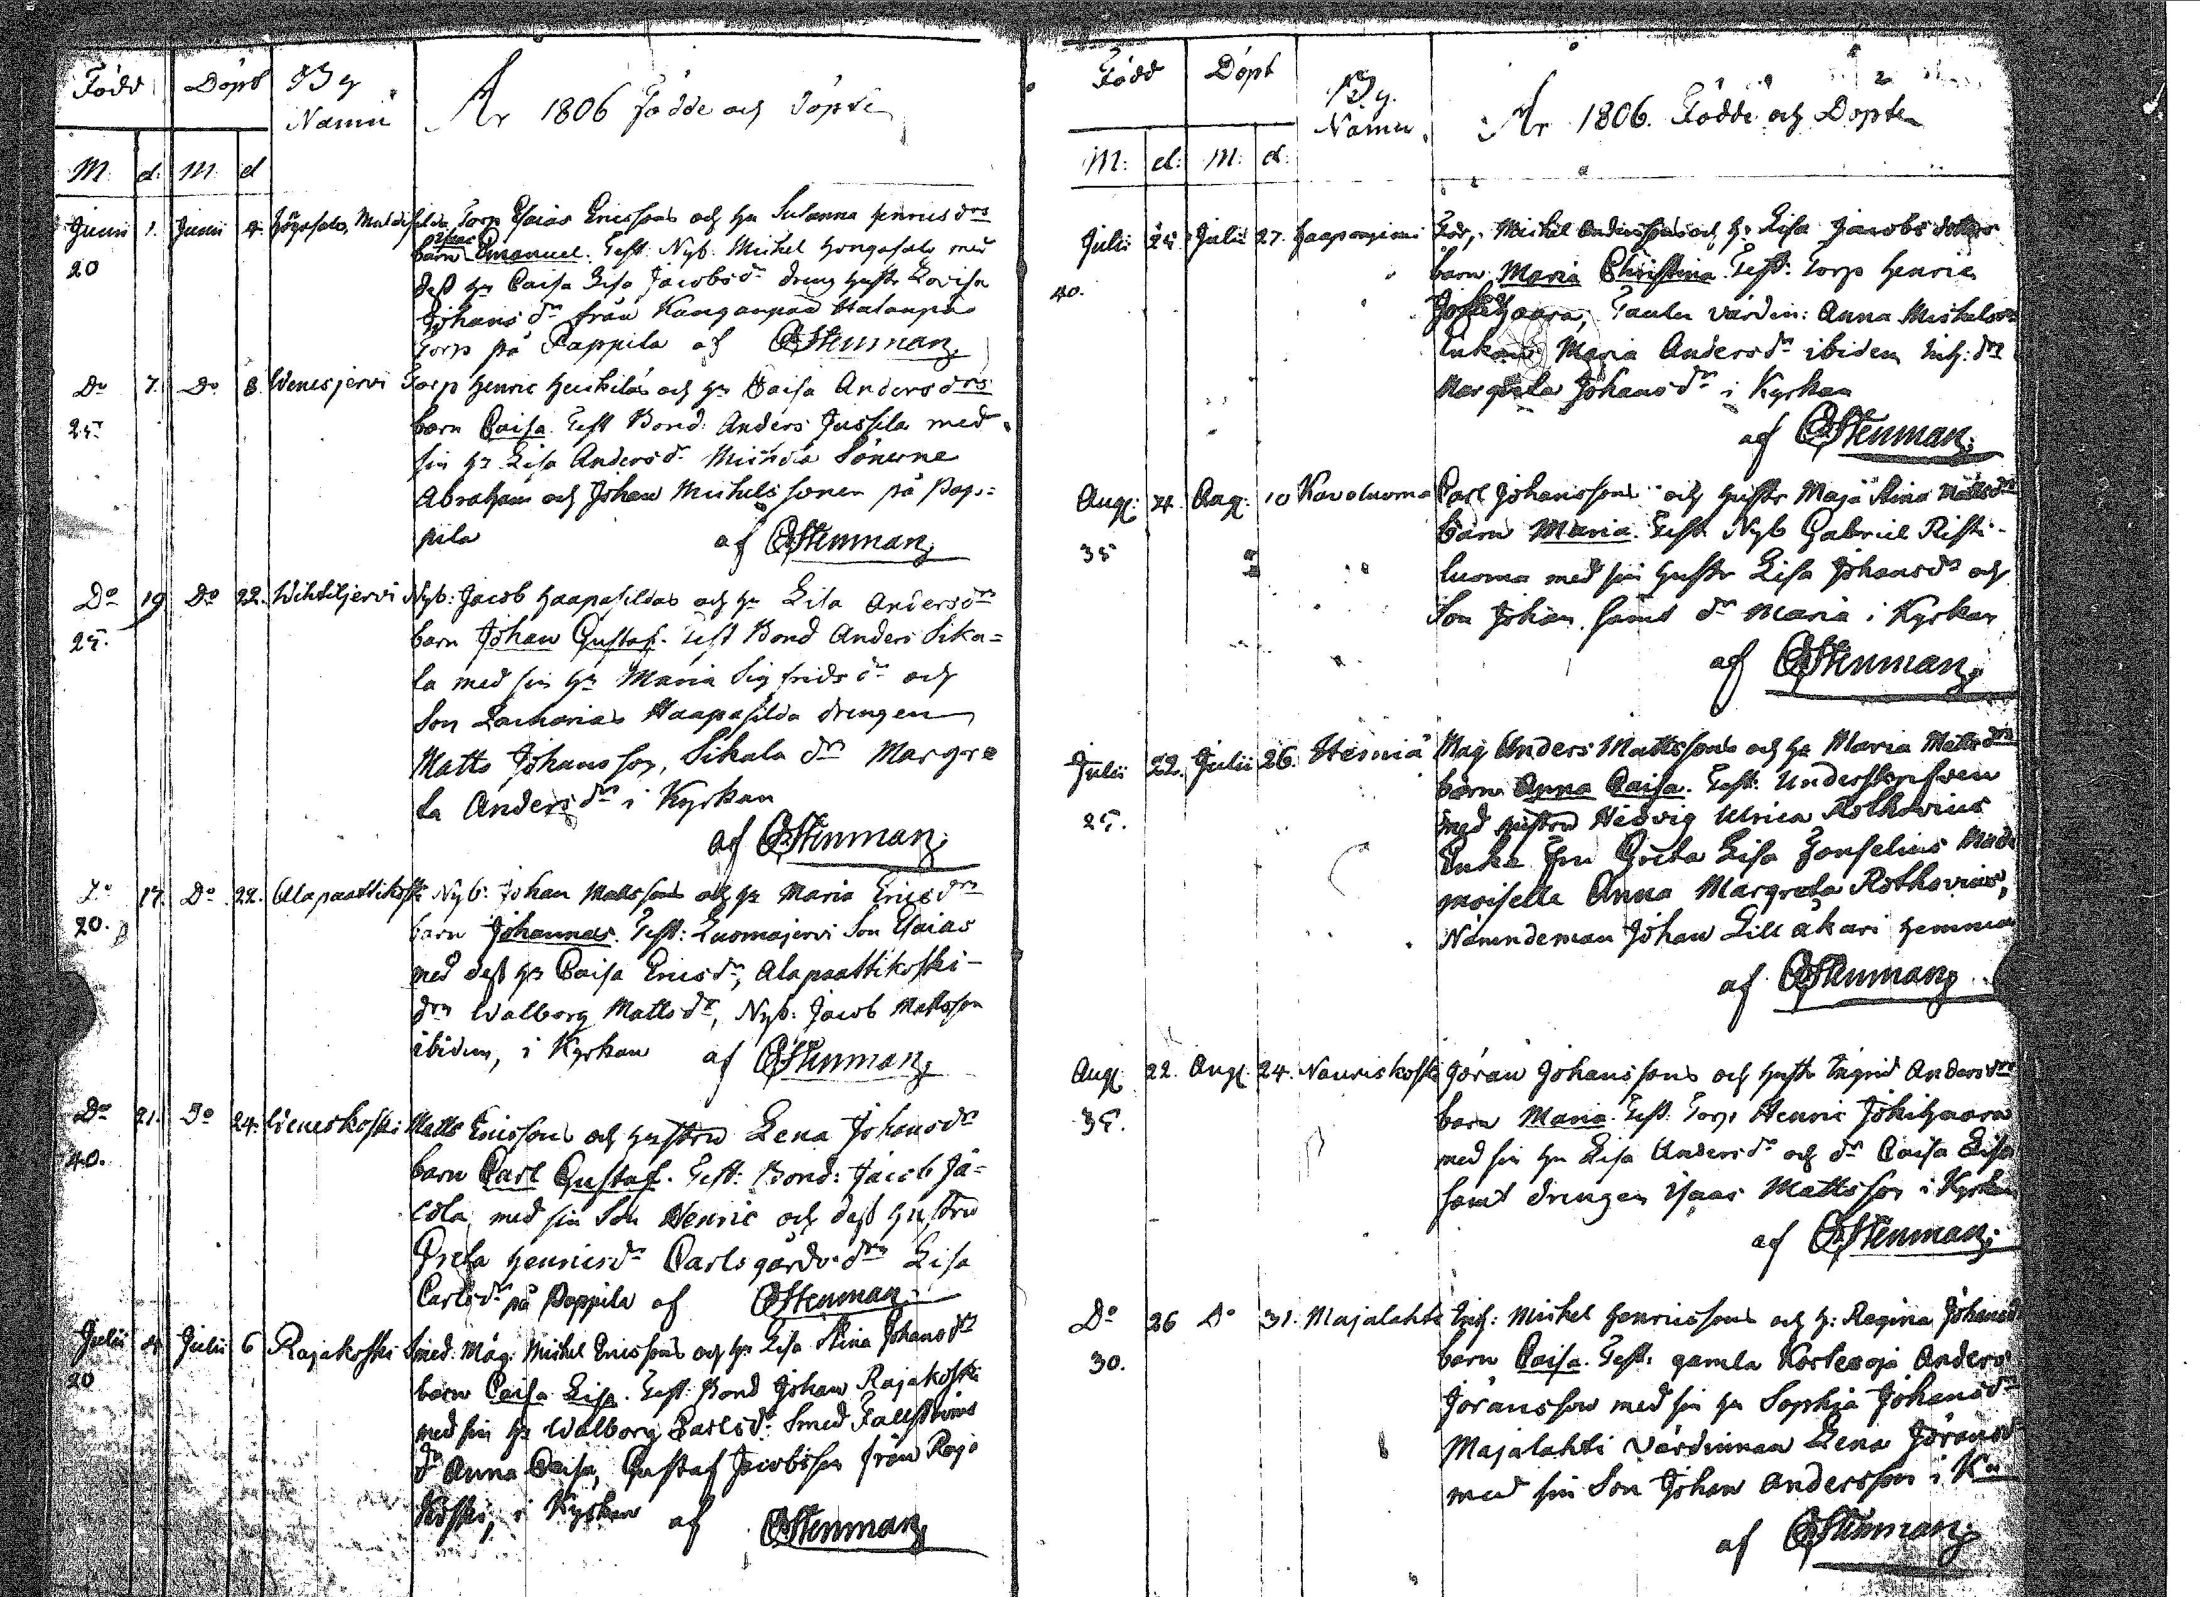 Född Döpt By
Namn År 1806 Födde och Döpte
M. d. M. d
Junii 1. Junii 4. Torp Esaias Ericssons och h:u Susanna Henricsd:rs
20 barn Isaac Emanuel. Test. Nyb. Michel Hongasalo med
dess h:u Caisa Lisa Jacobsd:r dreng hustr Lovisa
Johansd:r från Kanganpää
Torp på Pappila af CStenman
D:o 7. D:o 8. Wenesjervi Torp Henric Heikkiläs och h:u Caisa Andersd:rs
25 barn Caisa. Test Bond. Anders Jussila med
sin h:u Lisa Andersd:r Sönerne
Abraham och Johan Michelssoner på Pap=
pila af CStenman
D:o 19 D:o 22. Wihteljervi Nyb: Jacob Haapasildas och h:u Lisa Andersd:rs
25. barn Johan Gustaf. Test Bond Anders Sika=
la med sin h:u Maria Sigfridsd:r och
Son Zacharias Haapasilda drengen
Matts Johansson, Sikala d:rn Margre
ta Andersd:r i Kyrkan
af CStenman
D:o 17. D:o 22. Alapaattikoski Nyb: Johan Mattssons och h:u Maria Ericsd:rs
20. barn Johannes. Test: Luomajervi Son Esaias
med dess h:u Caisa Ericsd:r, Alapaattikoski-
d:rn Walborg Mattsd:r, Nyb: Jacob Mattsson
ibidem, i Kyrkan af CStenman
D:o 21. D:o 24. Weneskoski Matts Ericssons och hustru Lena Johansd:rs
40. barn Carl Gustaf. Test: Bond: Jacob Jä=
lda med sin Son Henric och dess hustru
Greta Henricsd:r Carlsgårds d:rn Lisa
Carlsd:r på Pappila af CStenman
Julii 4 Julii 6 Rajakoski Smed. Måg. Michel Ericssons och h:u Lisa Stina Johansd:rs
20 barn Caisa Lisa. Test: Bond Johan Rajakoski
med sin h:u Walborg Carlsd:r Smed Fallströms
d:r Anna Caisa, Gustaf Jacobsson från Raja
koski, i Kyrkan af CStenman
Född Döpt By.
Namn År 1806. Födde och Döpte
M: d: M: d:
Julii 25 Julii 27. Haapaniemi Michel Anderssons och h:u Lisa Jacobsdotters
40. barn Maria Christina. Test: Torp Henric
värdin: Anna Michelsd:r
Enkan Maria Andersd:r ibidem Inh: d:rn
Margreta Johansd:r i Kyrkan
af CStenman
Aug: 4. Aug: 10 Kavoluoma Carl Johanssons och hustr Maja Stina Mattsd:rs
35 barn Maria. Test Nyb Gabriel Risti-
luoma med sin hustr Lisa Johansd:r och
Son Johan samt d:r Maria i Kyrkan
af CStenman
Julii 22. Julii 26. Heiniä Mag Anders Mattssons och h:u Maria Mattsd:rs
25. barn Anna Caisa. Test:
med hustru Hedvig Ulrica Rothovius
Enke Fru Greta Lisa Forselius Made
moiselle Anna Margreta Rothovius,
Nämndeman Johan Lill åkari hemma
af CStenman
Aug: 22. Aug: 24. Nauriskoski Göran Johanssons och hustr Ingrid Andersd:rs
35. barn Maria. Test: Torp Henric Jokihaara
med sin h:u Lisa Andersd:r och d:r Caisa Lisa
samt drengen Isaac Mattsson i Kyrkan
af CStenman
D:o 26 D:o 31. Majalahti Inh: Michel Henricssons och h: Regina Johansd
30. barn Caisa. Test: gamla Korteoja Anders
Joransson med sin h:u Sophia Johansd:r
Majalahti värdinnan Lena Joransd
med sin Son Johan Andersson i K:n
af CStenman